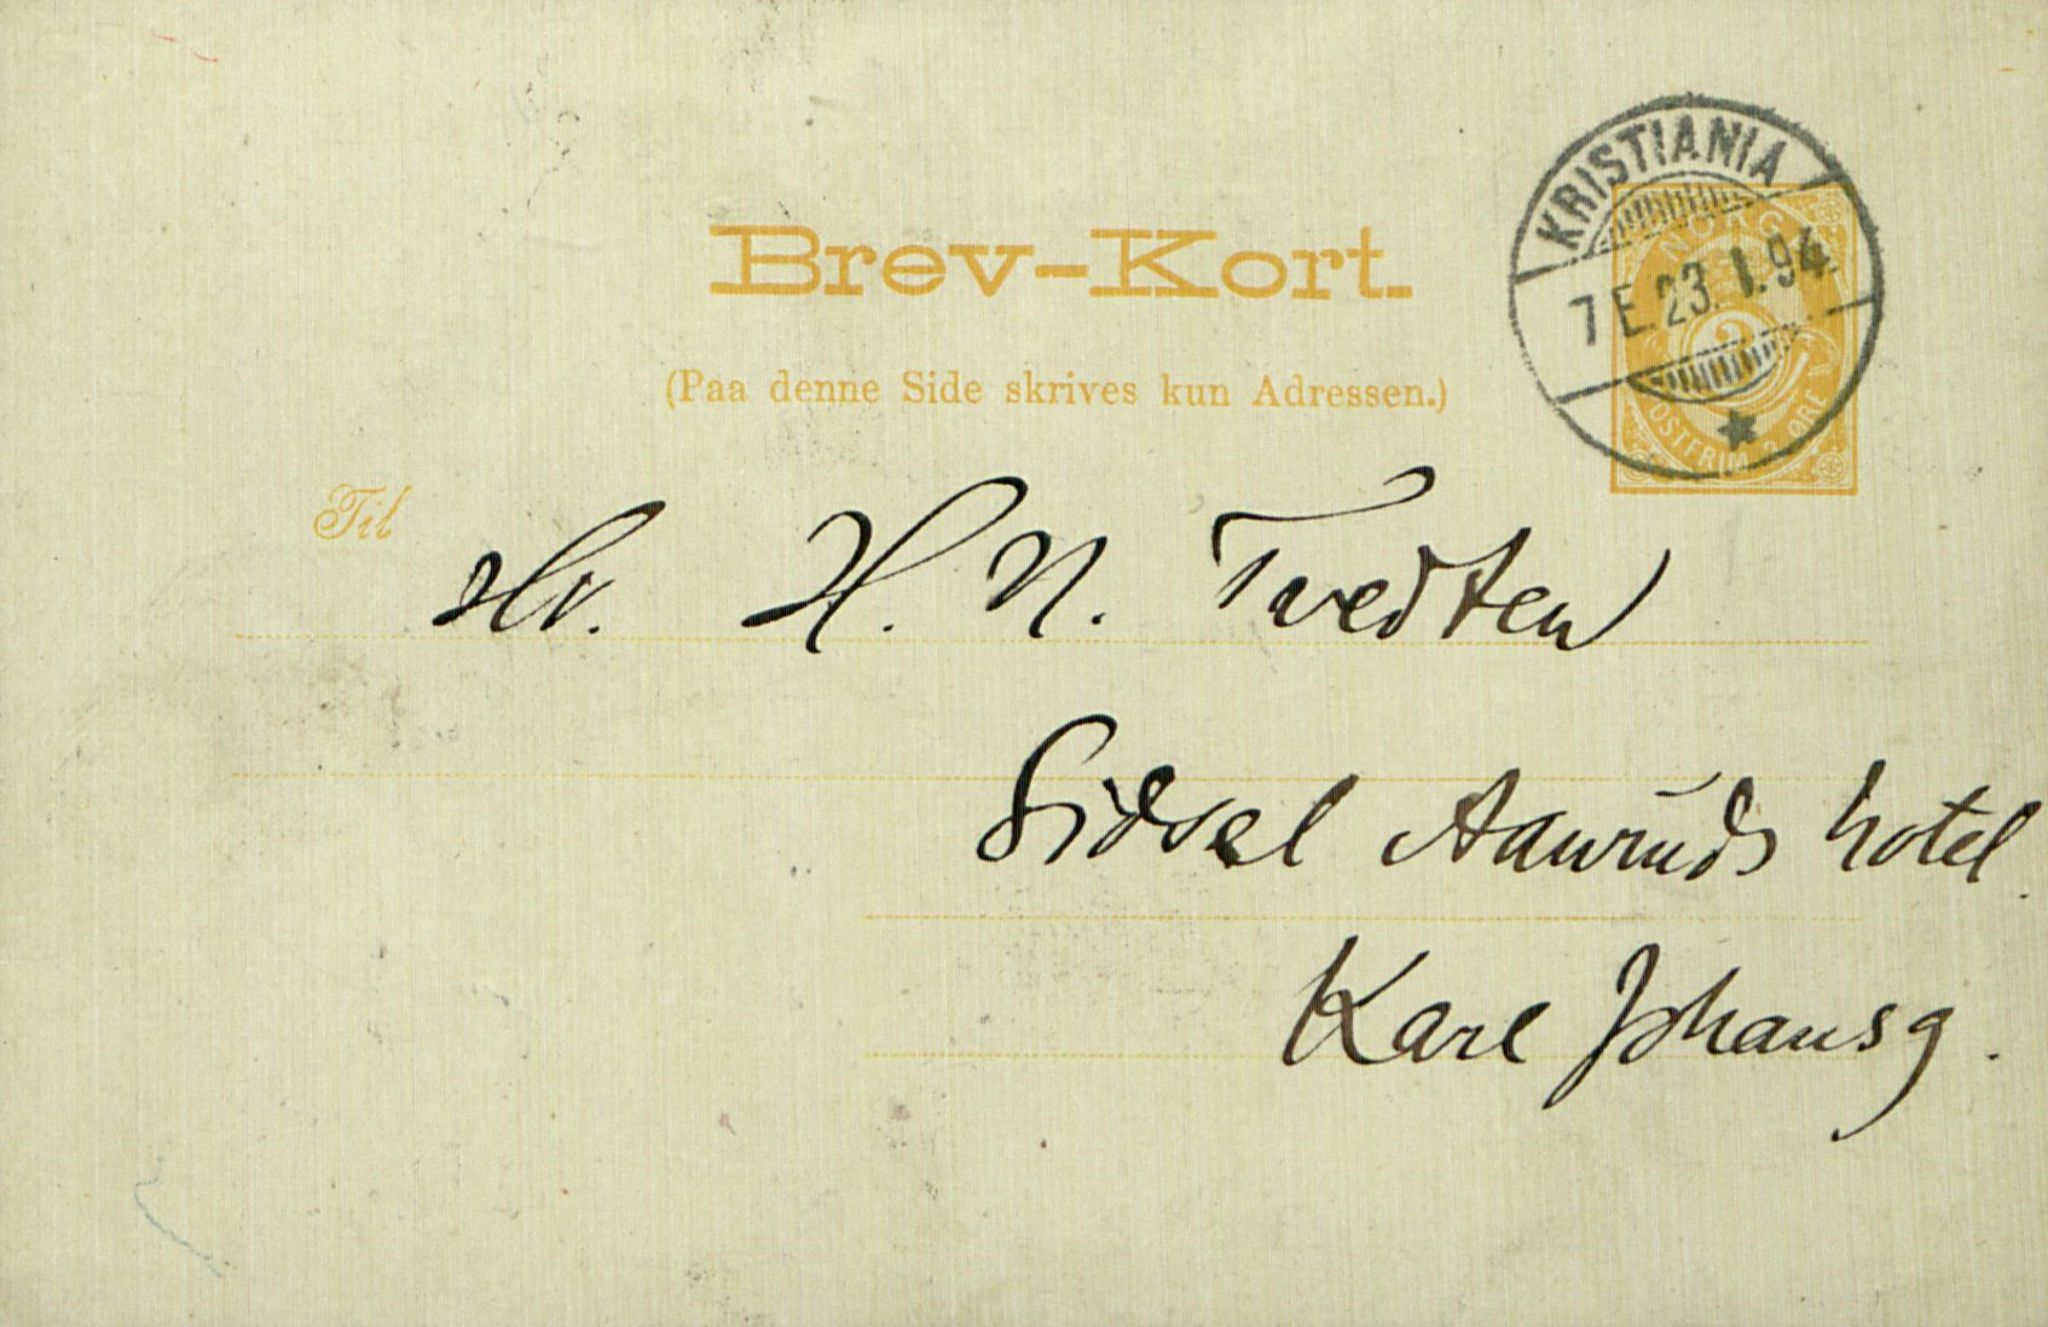 KRISTIANIA
7 E. 23. 1. 94
NORGE
3
POSTFRIM. 3 ØRE
Brev-Kort.
(Paa denne Side skrives kun Adressen.)
Til
Hr. H. N. Tvedten
Sidsel Aanruds hotel.
Karl Johansg.